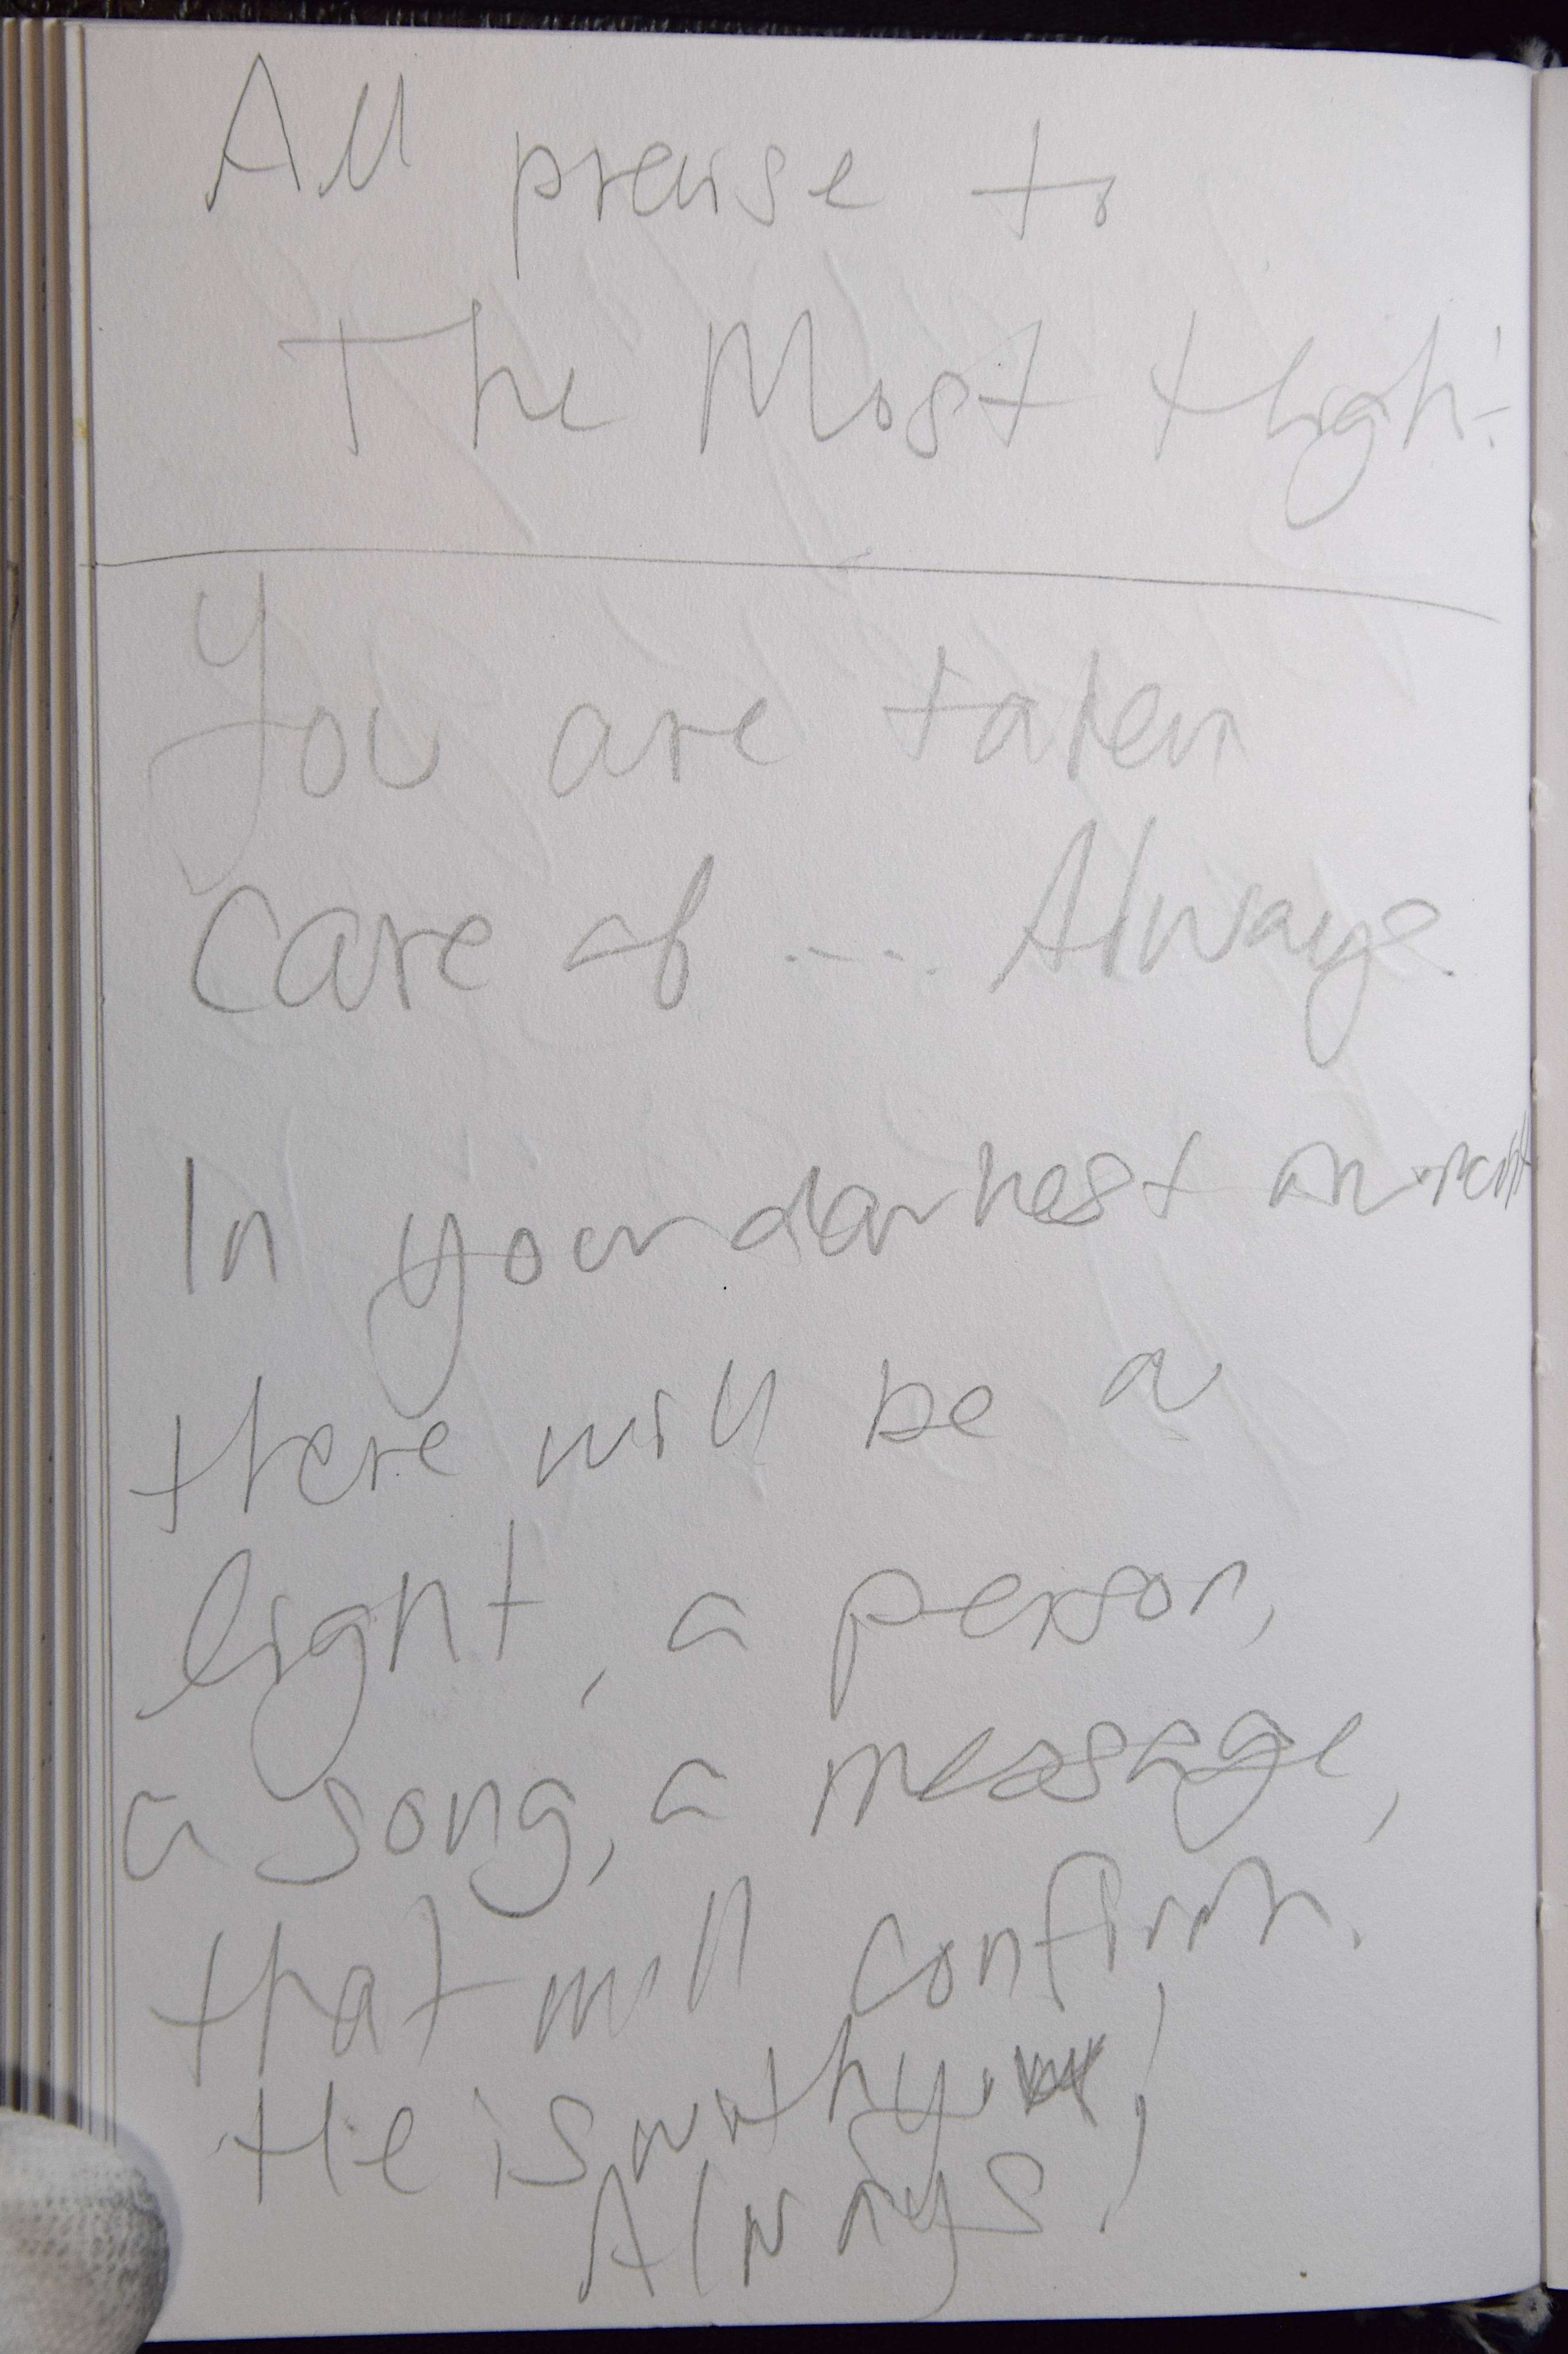 All praise to
The Most High!
You are taken
care of .... Always.
In your darkest moment
there will be a
light, a person,
a song, a message,
that will confirm.
He is worthy!
Always!